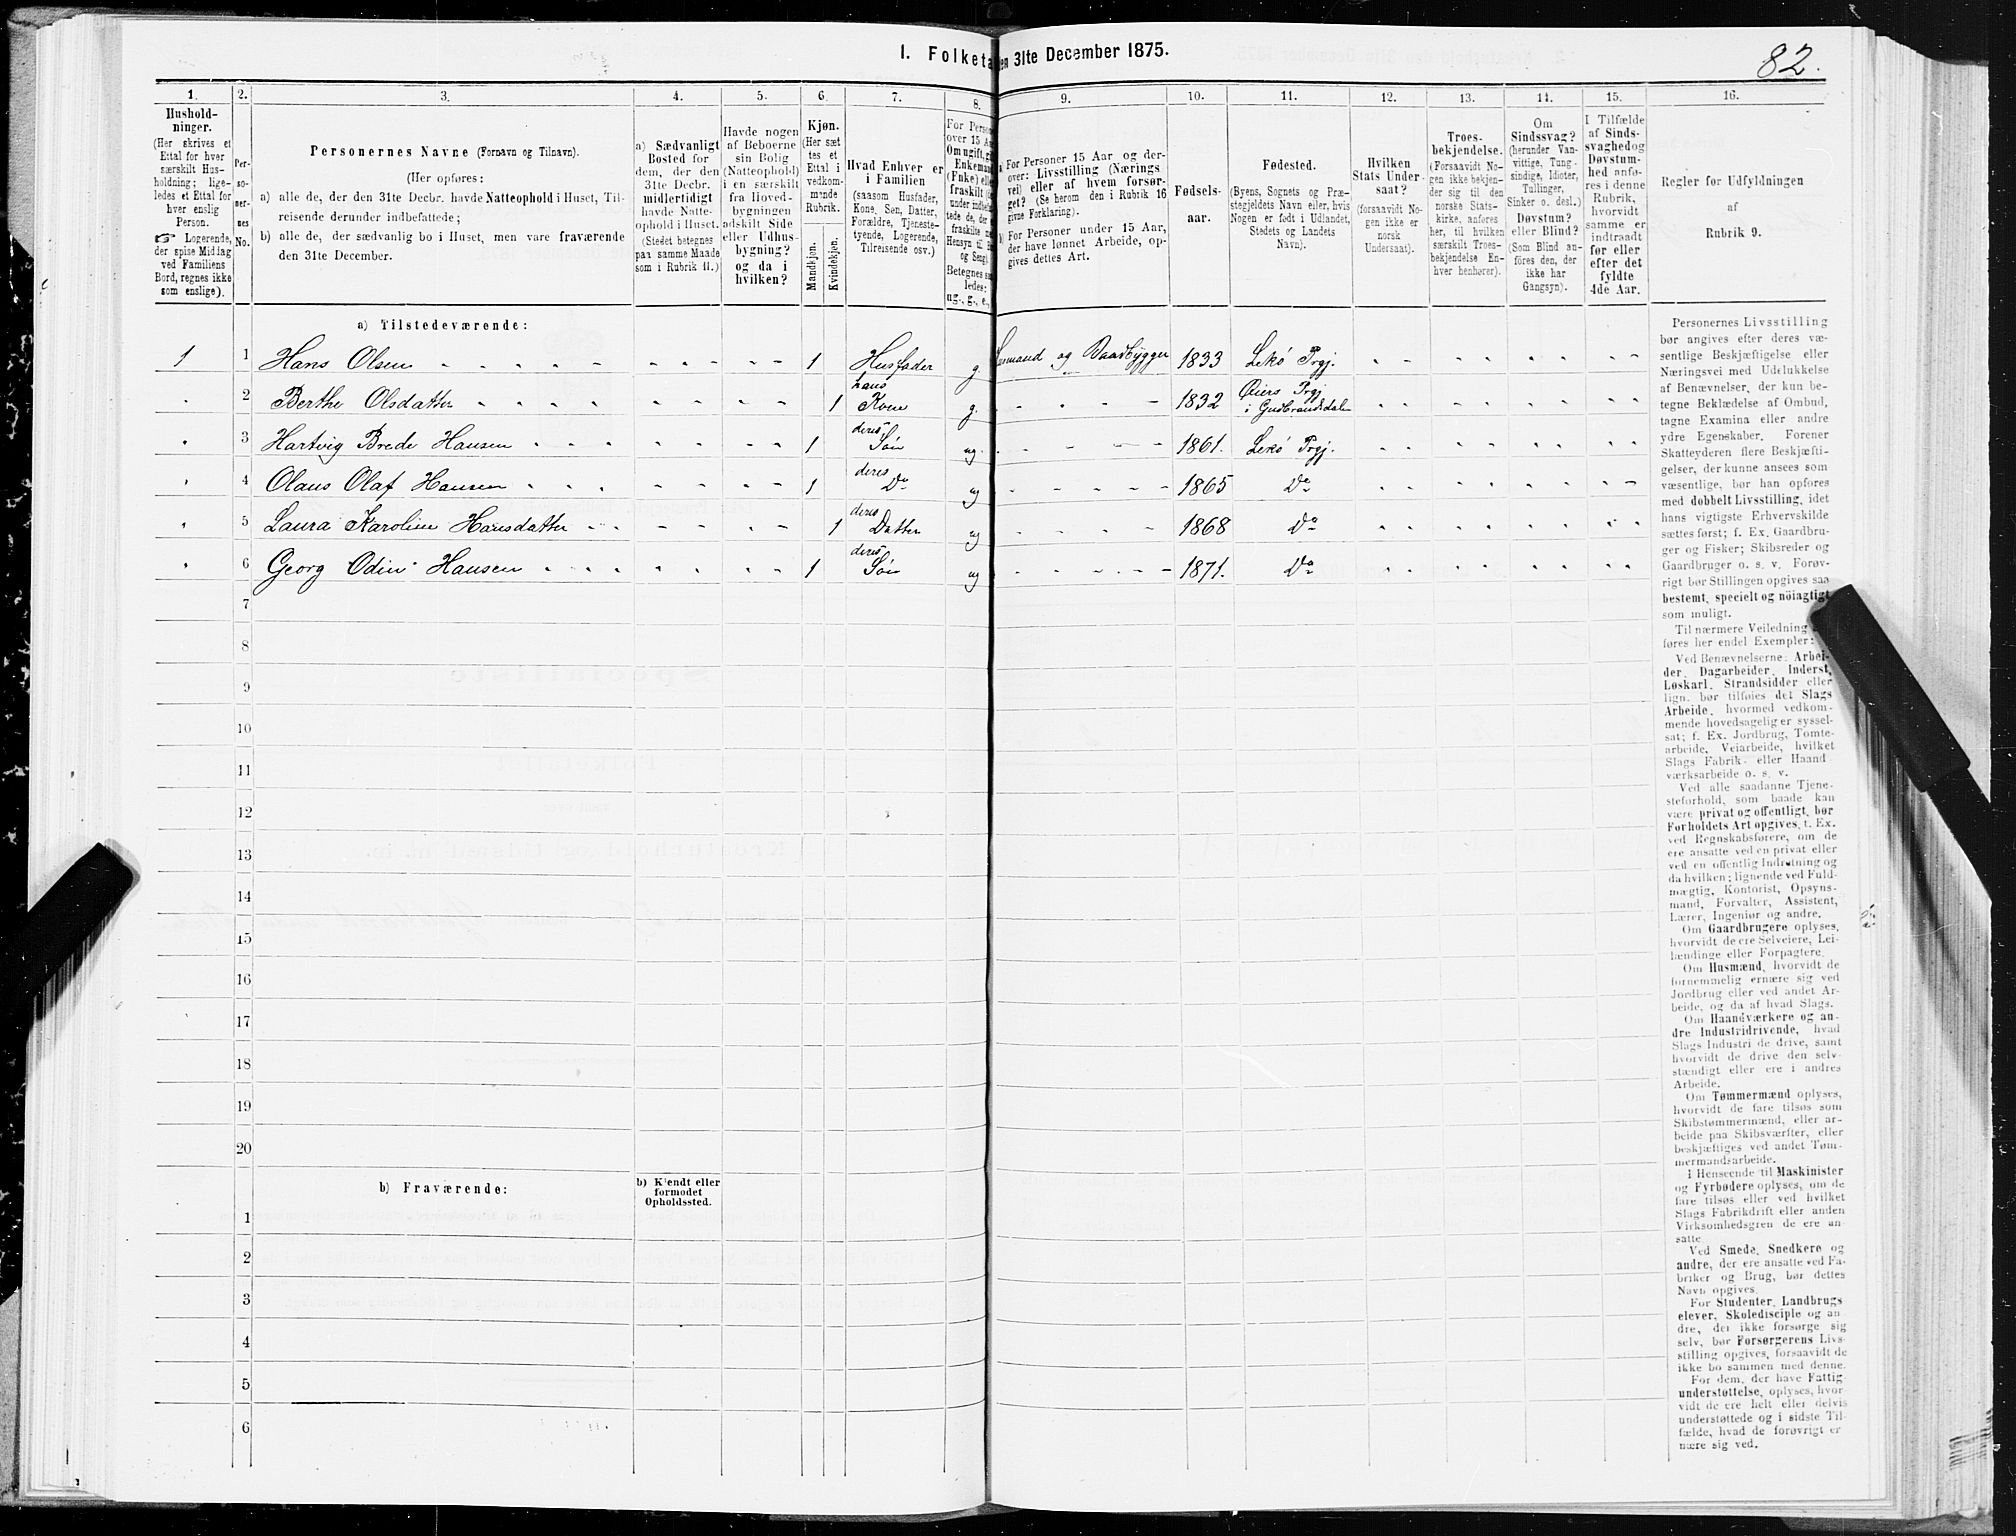 I. Folketa en 31te December 1875.
82.
1. 2. 3. 4. 5. 6. 7. 8. 9. 10. 11. 12. 13. 14. 15. 16.
Hushold-
ninger.
(Her skrives et
Ettal for hver
særskilt Hus-
holdning; lige-
ledes et Ettal for
hver enslig
Person.
☞ Logerende,
der spise Middag
ved Familiens
Bord, regnes ikke
som enslige).
Per-
so-
ner-
nes
No.
Personernes Navne (Fornavn og Tilnavn).
(Her opføres:
a) alle de, der den 31te Decbr. havde Natteophold i Huset, Til-
reisende derunder indbefattede;
b) alle de, der sædvanlig bo i Huset, men vare fraværende
den 31te December.
a) Sædvanligt
Bosted for
dem, der den
31te Decbr.
midlertidigt
havde Natte-
ophold i Huset.
(Stedet betegnes
paa samme Maade
som i Rubrik 11.)
Havde nogen
af Beboerne
sin Bolig
(Natteophold)
i en særskilt
fra Hoved-
bygningen
adskilt Side
eller Udhus-
bygning?
og da i
hvilken?
Kjøn.
(Her sæt
tes et
Ettal i
vedkom-
mende
Rubrik.
Mandkjøn.
Kvindekjøn.
Hvad Enhver er
i Familien
(saasom Husfader,
Kone, Søn, Datter,
Forældre, Tjeneste-
tyende, Logerende,
Tilreisende osv.)
For Perso
over 15 Aa
Om ugift, g
Enkeman
(Enke) elle
fraskilt (
under indbe
tede de, de
fraskilte m
Hensyn til B
og Seng).
Betegnes sa
ledes:
ug., g., e.,
a) For Personer 15 Aar og der-
over: Livsstilling (Nærings-
vei) eller af hvem forsør-
get? (Se herom den i Rubrik 16
givne Forklaring).
b) For Personer under 15 Aar,
der have lønnet Arbeide, op-
gives dettes Art.
Fødsels-
aar.
Fødested.
(Byens, Sognets og Præ-
stegjeldets Navn eller, hvis
Nogen er født i Udlandet,
Stedets og Landets
Navn).
Hvilken
Stats Under-
saat?
(forsaavidt No-
gen ikke er
norsk
Undersaat).
Troes-
bekjendelse.
(Forsaavidt No-
gen ikke bekjen-
der sig til den
norske Stats-
kirke, anføres
her, til hvilken
særskilt Troes-
bekjendelse En-
hver henhører).
Om
Sindssvag?
(herunder Van-
vittige, Tung-
sindige, Idioter,
Tullinger,
Sinker o. desl.)
Døvstum?
eller Blind?
(Som Blind an-
føres den, der
ikke har
Gangsyn).
I Tilfælde
af Sinds-
svaghed og
Døvstum-
hed anfø-
res i denne
Rubrik,
hvorvidt
samme er
indtraadt
før eller
efter det
fyldte
4de Aar.
Regler for Udfyldningen
af
Rubrik 9.
a) Tilstedeværende:
1 1 Hans Olsen 1 Husfader g. usmand og Baadbygger 1833 Lekø Prgj.
2 Berthe Olsdatter 1 hans Kone g. 1832 Øiers Prgj i Gudbrandsdalen
3 Hartvig Brede Hansen 1 deres Søn ug. 1861. Lekø Prgj.
4 Olaus Olaf Hansen 1 deres Do ug 1865 Do
5 Laura Karoline Hansdatter 1 deres Datter ug 1868 Do
6 Georg Odin Hansen 1 deres Søn ug 1871. Do
7
8
9
10
11
12
13
14
15
16
17
18
19
20
b) Fraværende:
b) Kjendt eller
formodet
Opholdssted.
1
2
3
4
5
6
Personernes Livsstilling
bør angives efter deres væ-
sentlige Beskjæftigelse eller
Næringsvei med Udelukkelse
af Benævnelser, der kun be-
tegne Beklædelse af Ombud,
tagne Examina eller andre
ydre Egenskaber. Forener
Skatteyderen flere Beskjæfti-
gelser, der kunne ansees som
væsentlige, bør han opføres
med dobbelt Livsstilling, idet
hans vigtigste Erhvervskilde
sættes først; f. Ex. Gaardbru-
ger og Fisker; Skibsreder og
Gaardbruger o. s. v. Forøv-
rigt bør Stillingen opgives saa
bestemt, specielt og nöiagtigt
som muligt.
Til nærmere Veiledning
føres her endel Exempler:
Ved Benævnelserne: Arbei-
der, Dagarbeider, Inderst,
Løskarl, Strandsidder eller
lign. bør tilføies det Slags
Arbeide, hvormed vedkom-
mende hovedsagelig er syssel-
sat; f. Ex. Jordbrug, Tomte-
arbeide, Veiarbeide, hvilket
Slags Fabrik- eller Haand-
værksarbeide o. s. v.
Ved alle saadanne Tjene-
steforhold, som baade kan
være privat og offentligt, bør
Forholdets Art opgives, t. Ex.
ved Regnskabsførere, om de
ere ansatte ved en privat eller
ved en offentlig Indretning og
da hvilken; lignende ved Fuld-
mægtig, Kontorist, Opsyns-
mand, Forvalter, Assistent,
Lærer, Ingeniør og andre.
Om Gaardbrugere oplyses,
hvorvidt de ere Selveiere, Lei-
lændinge eller Forpagtere.
Om Husmænd, hvorvidt de
fornemmelig ernære sig ved
Jordbrug eller ved andet Ar-
beide, og da af hvad Slags.
Om Haandværkere og an-
dre Industridrivende, hvad
Slags Industri de drive, samt
hvorvidt de drive den selv-
stændigt eller ere i andres
Arbeide.
Om Tømmermænd oplyses,
hvorvidt de fare tilsøs som
Skibstømmermænd, eller ar-
beide paa Skibsværfter, eller
beskjæftiges ved andet Tøm-
mermandsarbeide.
I Henseende til Maskinister
og Fyrbødere oplyses, om de
fare tilsøs eller ved hvilket
Slags Fabrikdrift eller anden
Virksomhedsgren de ere an-
satte.
Ved Smede, Snedkere og
andre, der ere ansatte ved Fa-
briker og Brug, bør dettes
Navn opgives.
For Studenter, Landbrugs
elever, Skoledisciple og an-
dre, der ikke forsørge sig
selv, bør Forsørgerens Livs-
stilling opgives, forsaavidt de
ikke bo sammen med denne.
For dem, der have Fattig-
understøttelse, oplyses, hvor-
vidt de ere helt eller delvis
understøttede og i sidste Til-
fælde, hvad de forøvrigt er
nære sig ved.